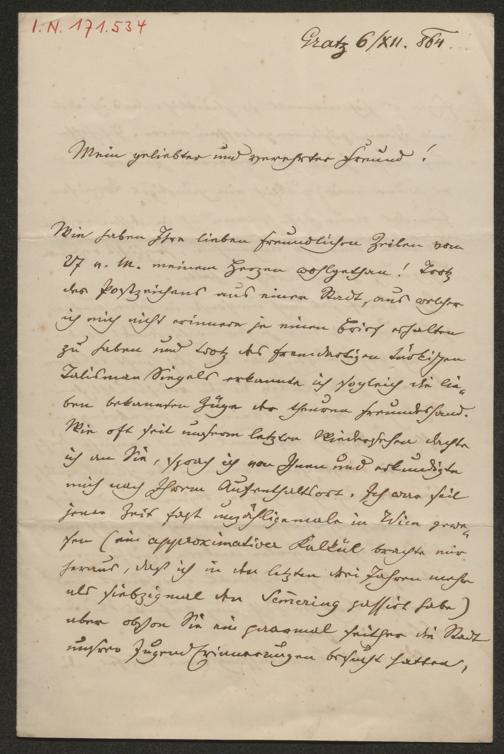 I.N. 171.534
Gratz 6/XII. 864.
Mein geliebter und verehrter Freund!
Wie haben Ihre lieben freundlichen Zeilen vom
27 v. M. meinem Herzen wohlgethan! Trotz
des Postzeichens aus einer Stadt, aus welcher
ich mich nicht erinnere je einen Brief erhalten
zu haben und trotz des fremdartigen türkischen
Talisman Siegels erkannte ich sogleich die lie-
ben bekannten Züge der theuren Freundeshand.
Wie oft seit unserem letzten Wiedersehen dachte
ich an Sie, sprach ich von Ihnen und erkundigte
mich nach Ihrem Aufenthaltsort. Ich war seit
jener Zeit fast unzähligemale in Wien gewe-
sen (ein approximativer Kalkül brachte mir
heraus, daß ich in den letzten drei Jahren mehr
als siebzigmal den Semering passirt habe)
aber obschon Sie ein paarmal seither die Stadt
unserer Jugenderinnerungen besucht hatten,